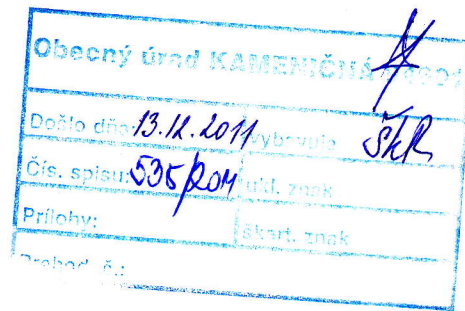 Obecný úrad KAMENIČNÁ
Došlo dňa: 13.12.2011 Vybavuje ŠkR
Čís. spisu: 535/2011 ukl. znak
Prílohy: škart. znak
Predchod. č.: